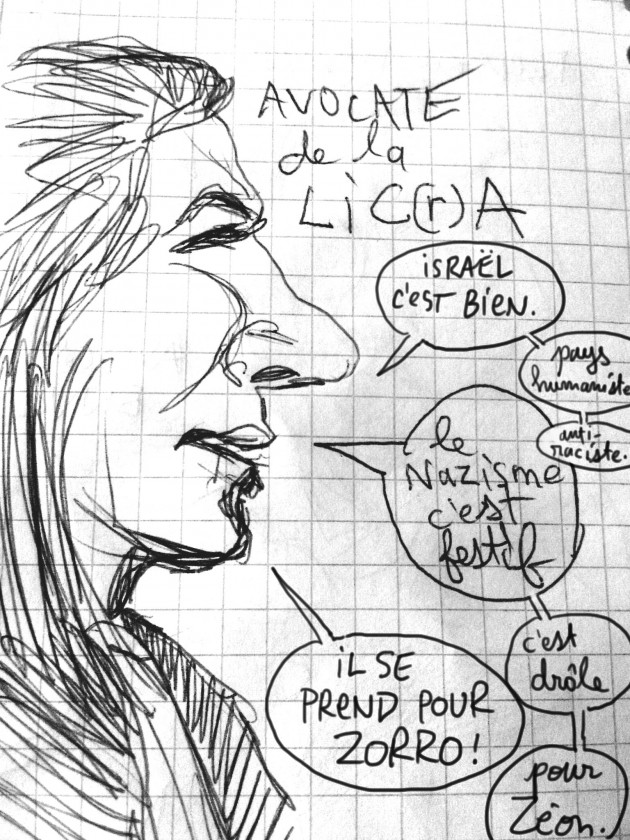 AVOCATE
de la
LiC(r)A
iSRAËL
c'EST BiEN.
pays
humaniste
anti-
raciste.
le
Nazisme
c'est
festif
c'est
drôle
pour
Zéon.
iL SE
PREND POUR
ZORRO!